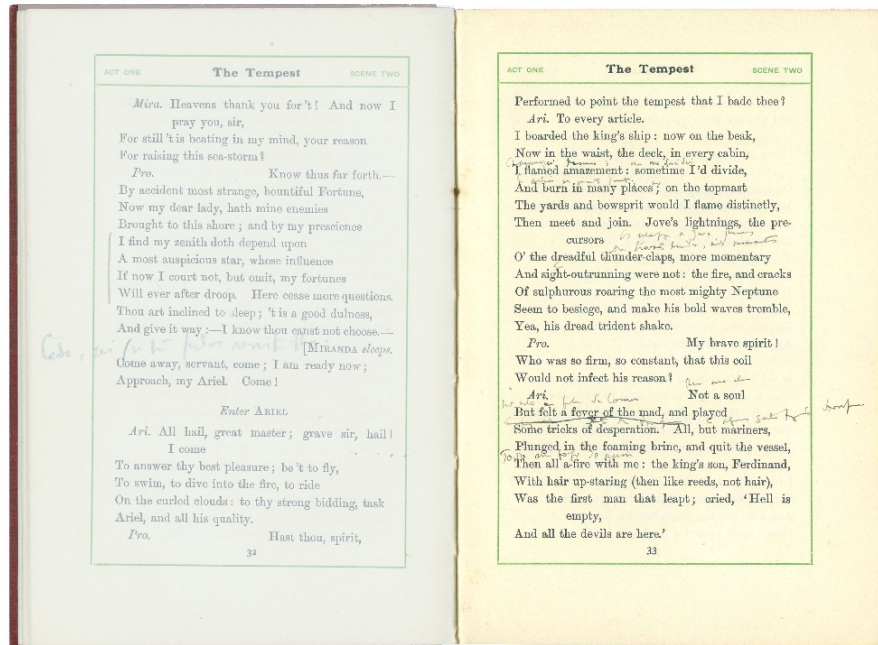 ACT ONE The Tempest SCENE TWO
Mira. Heavens thank you for 't! And now I
pray you, sir,
For still 't is beating in my mind, your reason
For raising this sea-storm?
Pro. Know thus far forth.—
By accident most strange, bountiful Fortune,
Now my dear lady, hath mine enemies
Brought to this shore; and by my prescience
I find my zenith doth depend upon
A most auspicious star, whose influence
If now I court not, but omit, my fortunes
Will ever after droop. Here cease more questions.
Thou art inclined to sleep; 't is a good dulness,
And give it way:—I know thou canst not choose.—
[MIRANDA sleeps.
Come away, servant, come; I am ready now;
Approach, my Ariel. Come!
Enter ARIEL
Ari. All hail, great master; grave sir, hail!
I come
To answer thy best pleasure; be 't to fly,
To swim, to dive into the fire, to ride
On the curled clouds: to thy strong bidding, task
Ariel, and all his quality.
Pro. Hast thou, spirit,
32
ACT ONE The Tempest SCENE TWO
Performed to point the tempest that I bade thee?
Ari. To every article.
I boarded the king's ship: now on the beak,
Now in the waist, the deck, in every cabin,
I flamed amazement: sometime I'd divide,
And burn in many places; on the topmast
The yards and bowsprit would I flame distinctly,
Then meet and join. Jove's lightnings, the pre-
cursors
O' the dreadful thunder-claps, more momentary
And sight-outrunning were not: the fire, and cracks
Of sulphurous roaring the most mighty Neptune
Seem to besiege, and make his bold waves tremble,
Yea, his dread trident shake.
Pro. My brave spirit!
Who was so firm, so constant, that this coil
Would not infect his reason?
Ari. Not a soul
But felt a fever of the mad, and played
Some tricks of desperation. All, but mariners,
Plunged in the foaming brine, and quit the vessel,
Then all a-fire with me: the king's son, Ferdinand,
With hair up-staring (then like reeds, not hair),
Was the first man that leapt; cried, 'Hell is
empty,
And all the devils are here.'
33